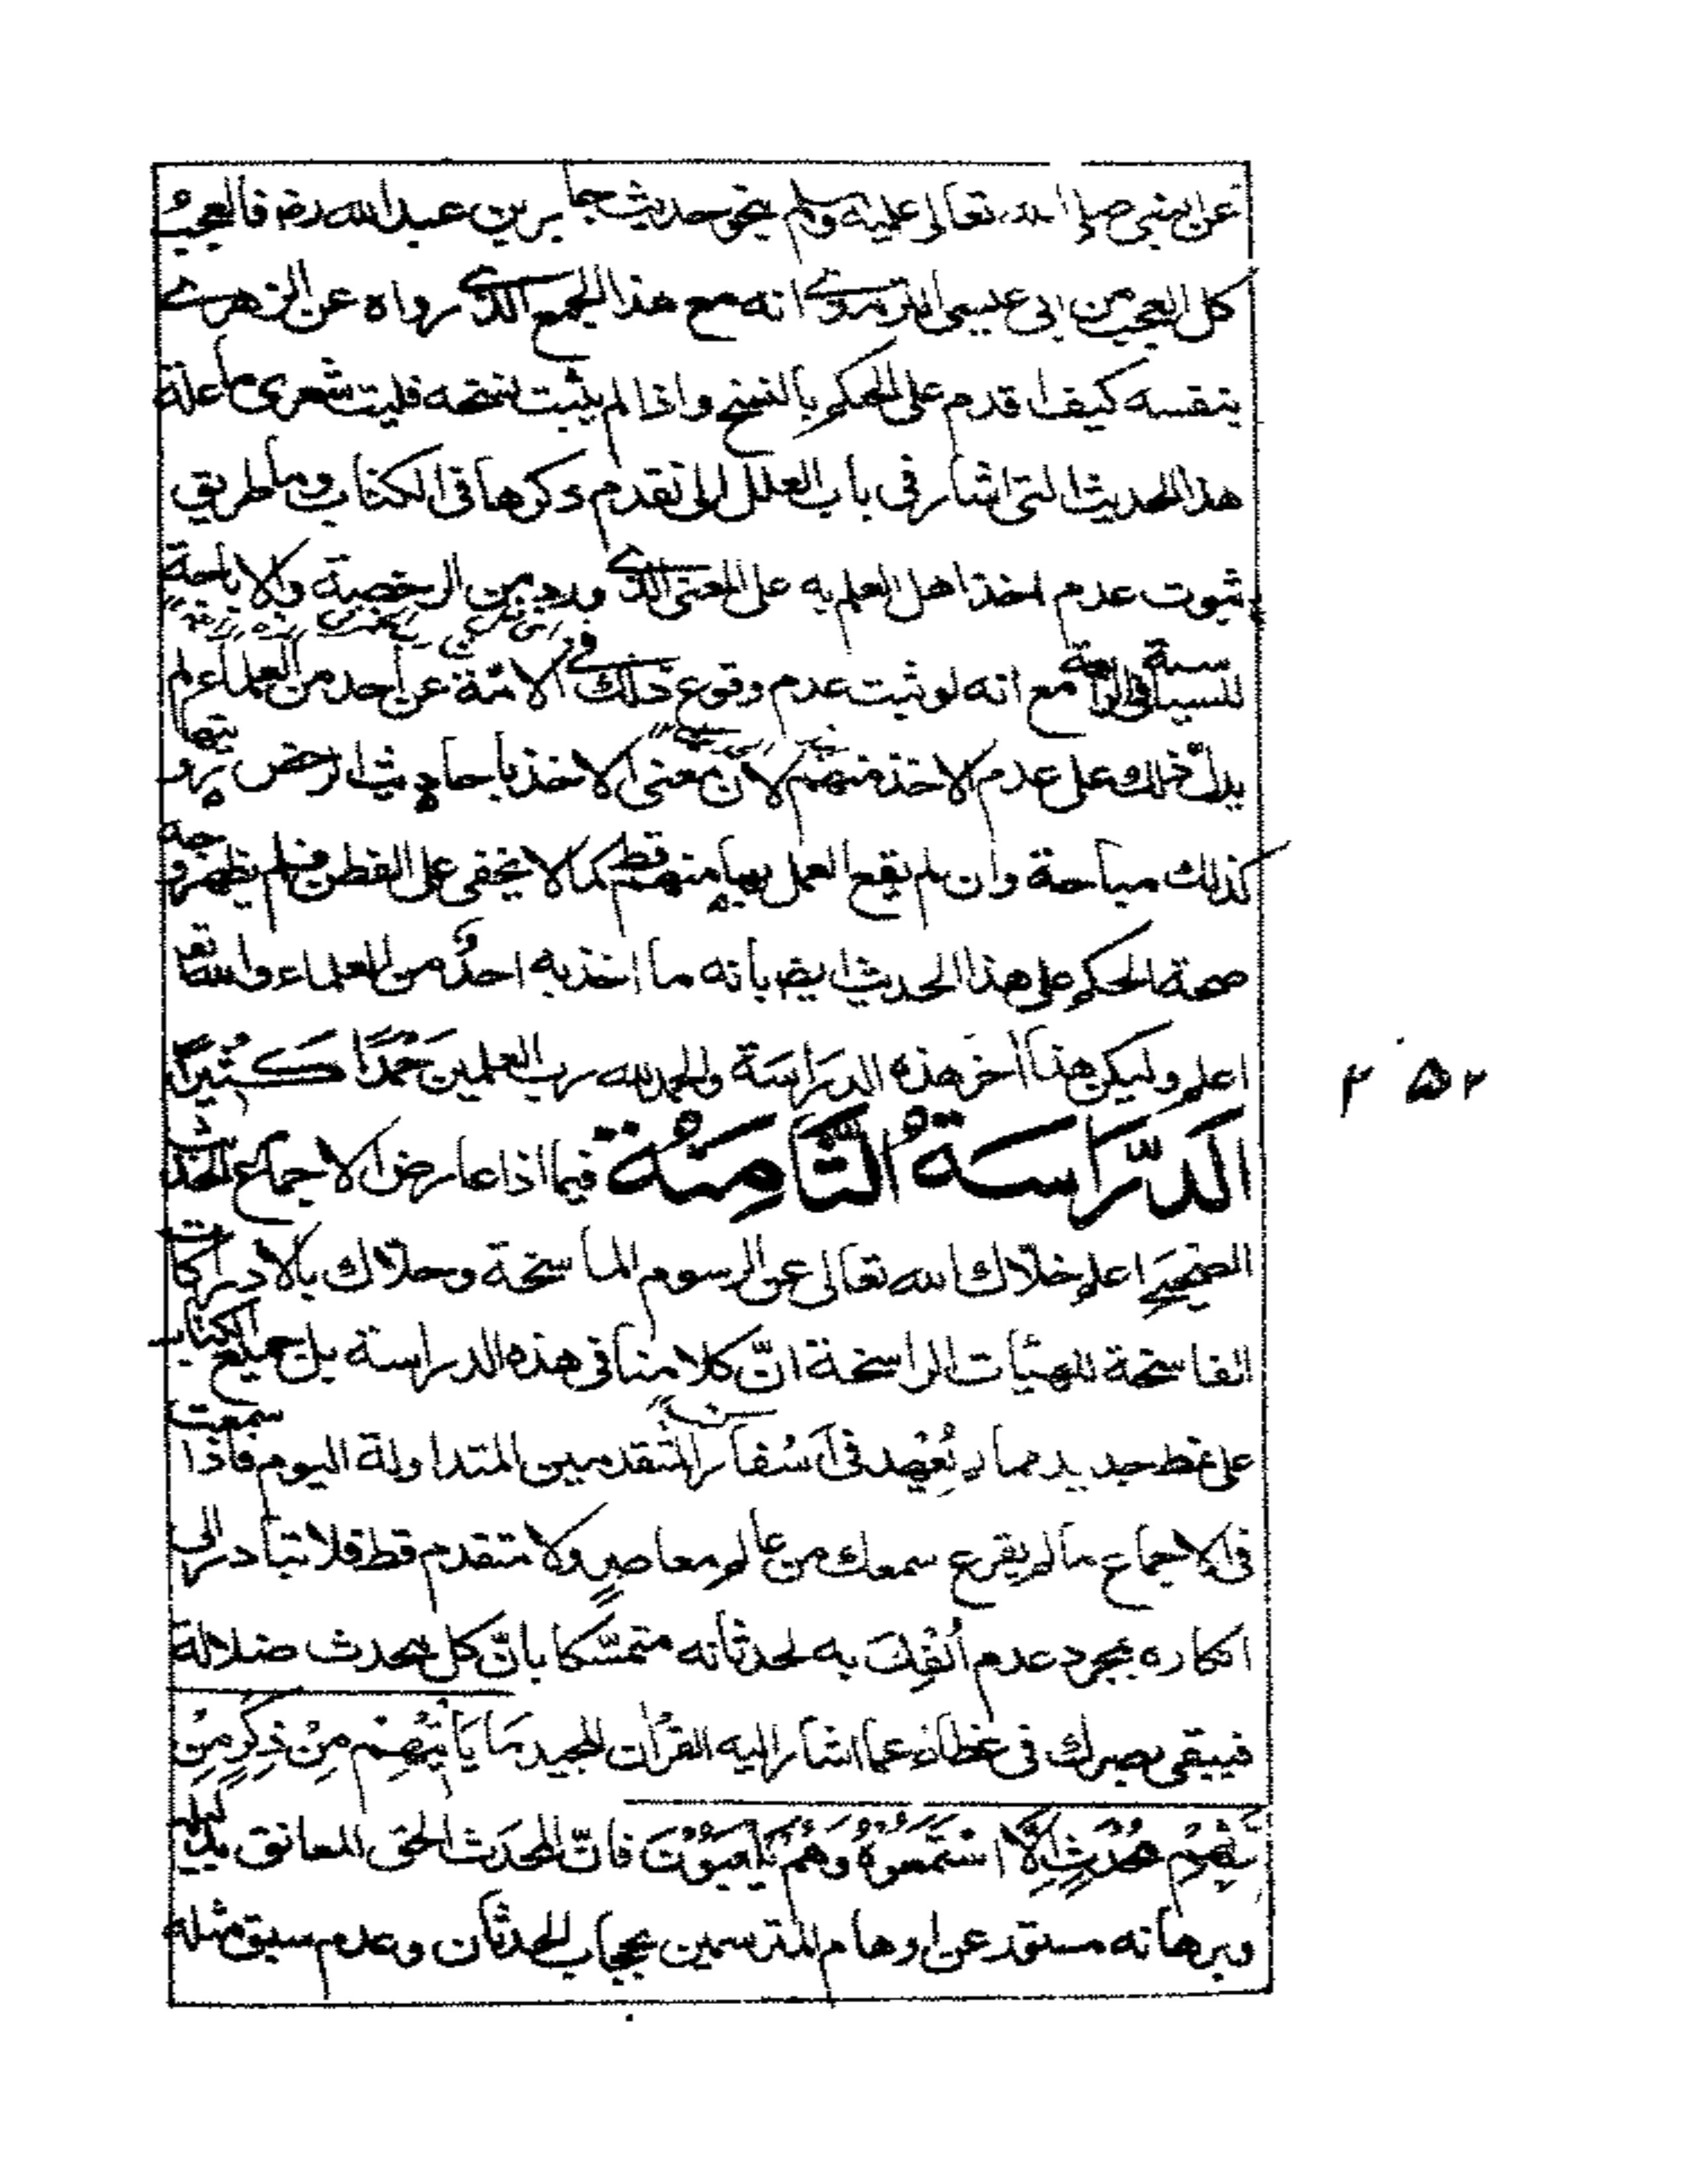 عن النبي صلى الله تعالى عليه وسلم نحو حديث جابر بن عبد الله رضه فالعجب
كل العجب من ابى عيسى الترمذى انه مع هذا الجمع الذى رواه عن الزهرى
بنفسه كيف اقدم على الحكم بالنسخ واذا لم يثبت نسخه فليت شعرى ما علة
هذا الحديث التى اشار فى باب العلل الى تقدم ذكرها فى الكتاب وما طريق
ثبوت عدم اخذ اهل العلم به على المعنى الذى ورد به من الرخصة والاباحة
مع انه لو ثبت عدم وقوع ذلك فى الامة عن احد من العلماء لم
يدل ذلك على عدم الاخذ منهم لانّ معنى الاخذ باحاديث الرخص يرونها
كذلك مباحة وان لم يقع العمل بها منهم قط كما لا يخفى على الفطن فلم يظهر وجه
صحة الحكم على هذا الحديث ايضا بانه ما اخذ به احدٌ من العلماء والله تعا
اعلم وليكن هذا آخر هذه الدراسَة والحمد لله رب العلمين حَمْدًا كَثِيرًا
الدّرَاسَةُ الثَّامِنَةُ فيما اذا عارض الاجماع الحديث
الصَّحِيحَ اعلم خلاّك الله تعالى عن الرسوم الماسخة وحلاّك بالادراكات
الفاسخة للهيئات الراسخة انّ كلامنا فى هذه الدراسة بل جميع الكتاب
على نمط جديد مما لم يُعْهَد فى اَسْفار المتقدمين المتداولة اليوم فاذا سمعت
فى الاجماع ما لم يقرع سمعك من عالم معاصرٍ ولا متقدم قط فلا تبادر الى
انكاره بمجرد عدم اُلْفِكَ به لحدثانه متمسّكا بانّ كل محدث ضلالة
فيبقى بصرك فى غطاء عما اشار اليه القرآن المجيد مَا يَأْتِيْهِمْ مِنْ ذِكْرٍ مِنْ
رَبِّهِمْ مُحْدَثٍ اِلَّا اسْتَمَعُوْهُ وَهُمْ يَلْعَبُوْنَ فانّ المحدَث الحق المعانق بدليله
وبرهانه مستور عن اوهام المترسمين بحجاب الحدثان وعدم سبق مثله
٢٥٢